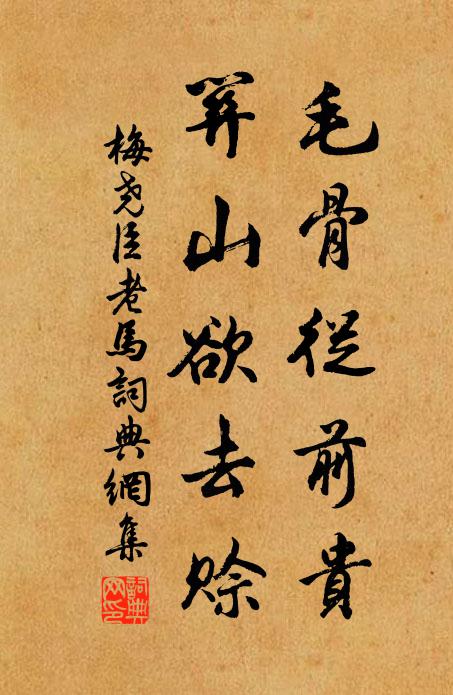 毛骨從前貴
關山欲去賒
梅堯臣老馬詞典網集
詞典
网印